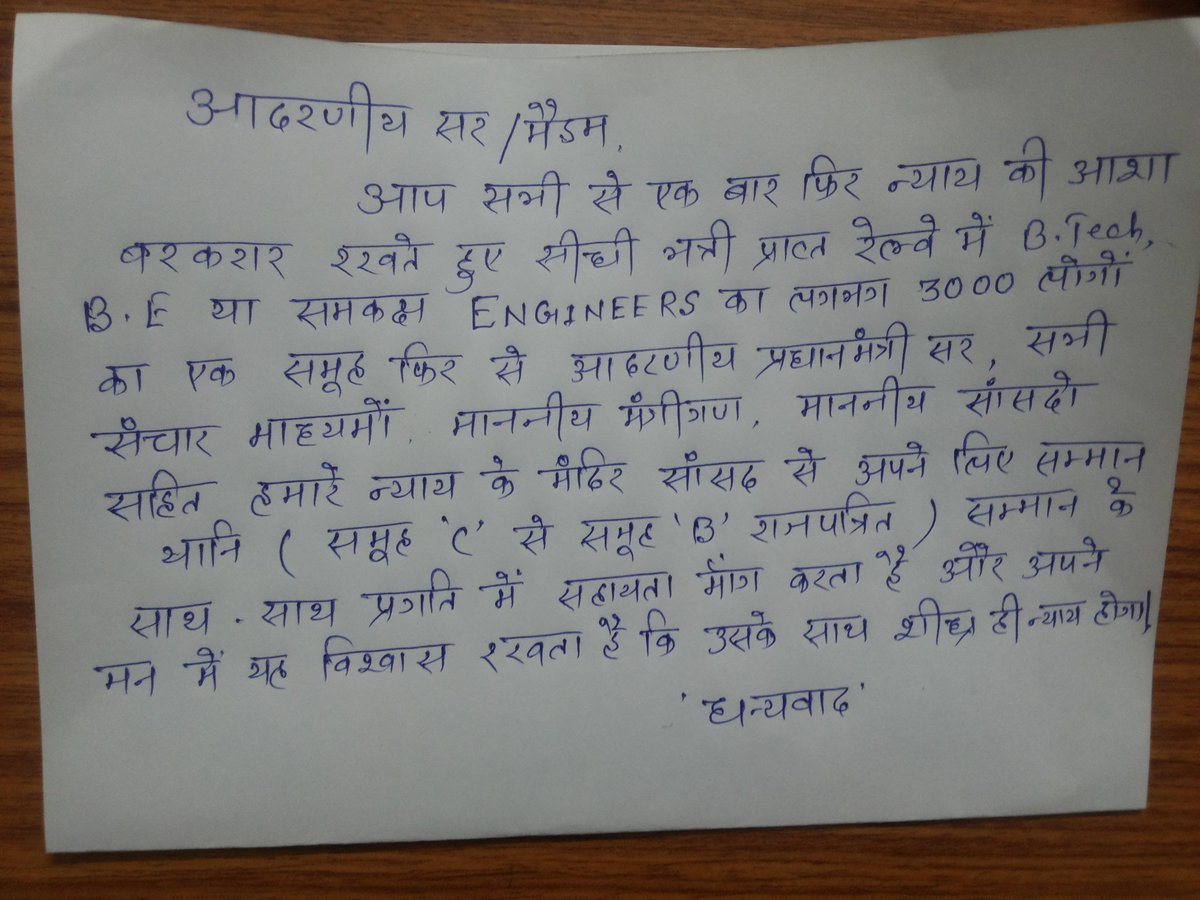 आदरणीय सर/मैडम,
आप सभी से एक बार फिर न्याय की आशा
बरकरार रखते हुए सीधी भर्ती प्राप्त रेल्वे में B.Tech,
B.E या समकक्ष ENGINEERS का लगभग 3000 लोगों
का एक समूह फिर से आदरणीय प्रधानमंत्री सर, सभी
संचार माध्यमों, माननीय मंत्रीगण, माननीय सांसदो
सहित हमारे न्याय के मंदिर सांसद से अपने लिए सम्मान
यानि ( समूह 'C' से समूह 'B' राजपत्रित ) सम्मान के
साथ - साथ प्रगति में सहायता माँग करता है और अपने
मन में यह विश्वास रखता है कि उसके साथ शीघ्र ही न्याय होगा।
'धन्यवाद'